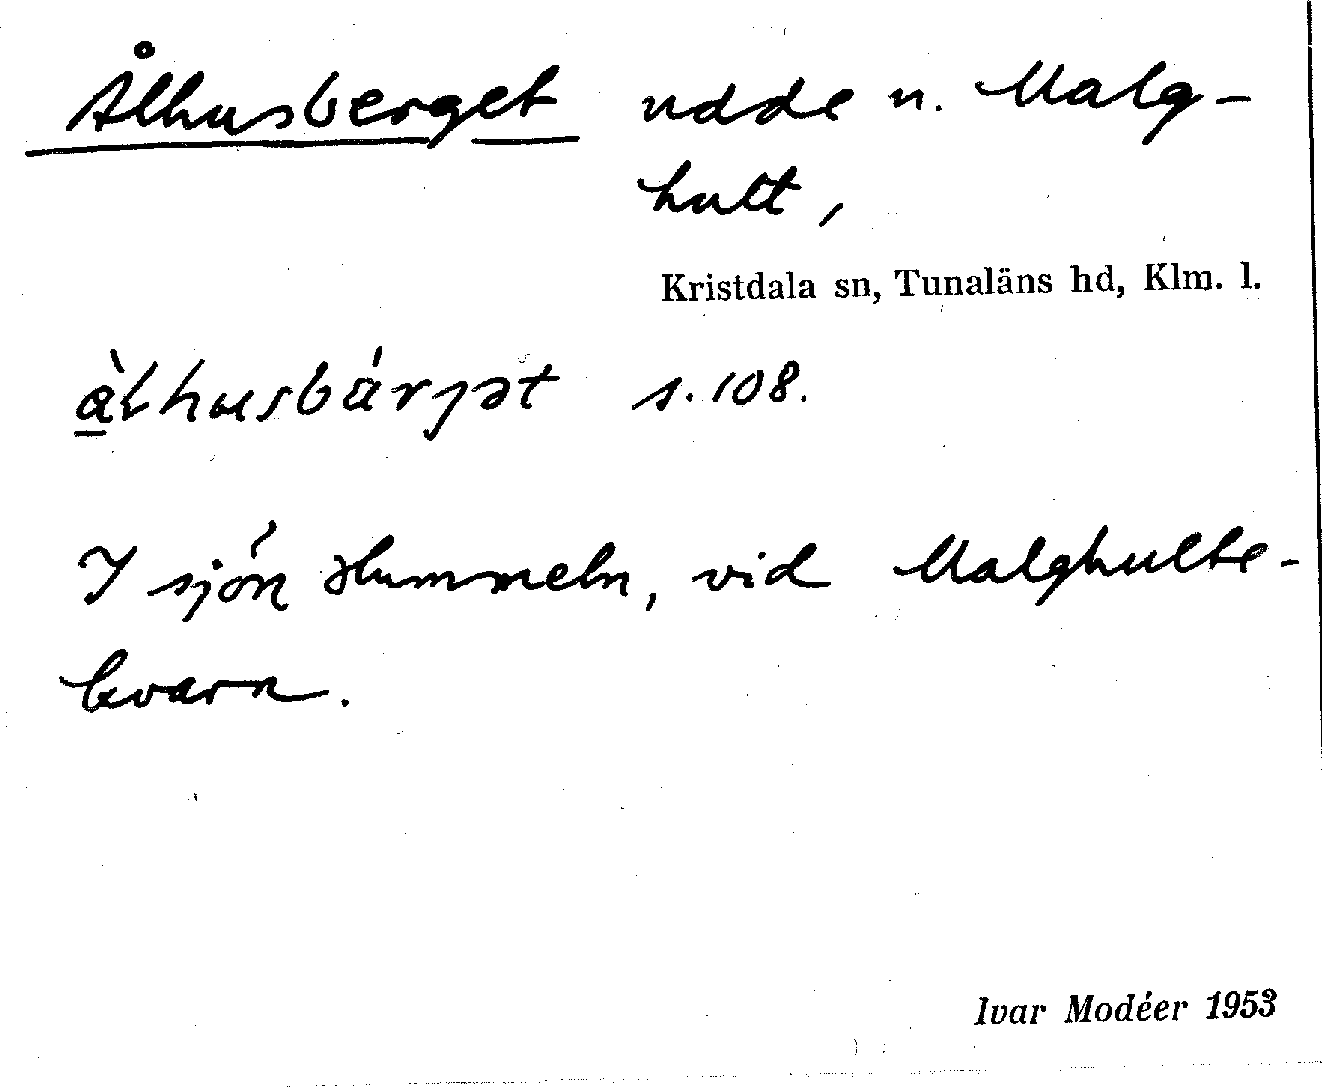 Ålhusberget udde n. Malg-
hult,
Kristdala sn, Tunaläns hd, Klm. l.
s. 108.
I sjön Hummeln, vid Malghulte-
kvarn.
Ivar Modéer 1953